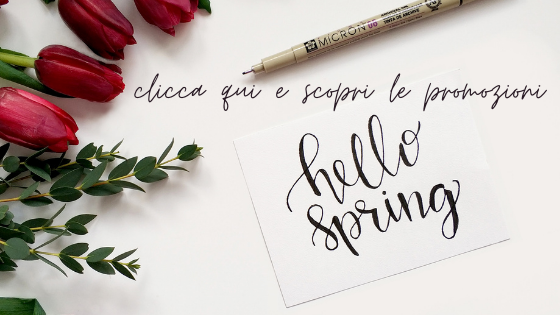 MICRON 08
clicca qui e scopri le promozioni
hello
spring